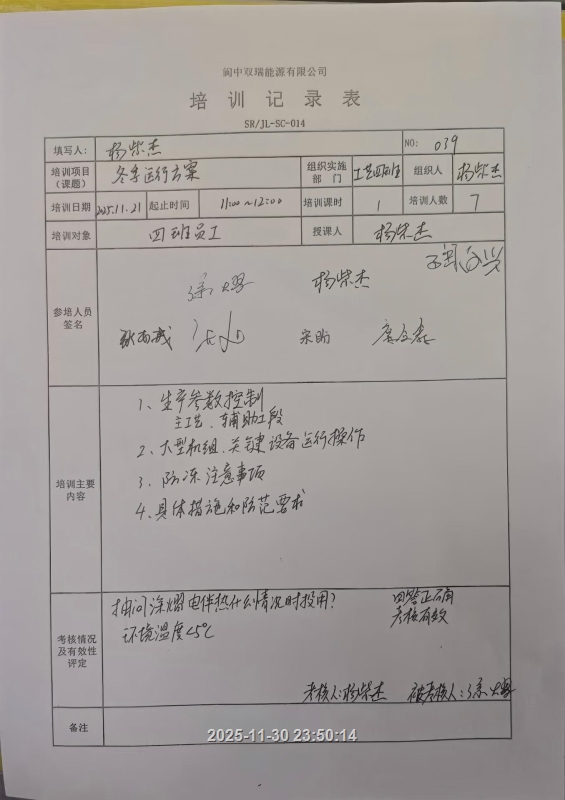 阆中双瑞能源有限公司
培训记录表
SR/JL-SC-014
填写人： 杨柴杰 NO: 039
培训项目（课题） 冬季运行方案 组织实施部门 工艺四班 组织人 杨柴杰
培训日期 2025.11.21 起止时间 11:00～12:00 培训课时 1 培训人数 7
培训对象 四班员工 授课人 杨柴杰
参培人员签名
杨柴杰
宋昀
培训主要内容
1、生产参数控制
主工艺、辅助工段
2、大型机组、关键设备运行操作
3、防冻注意事项
4、具体措施和防范要求
考核情况及有效性评定
抽问涂熠电伴热什么情况时投用？ 回答正确
环境温度<5℃ 考核有效
考核人:杨柴杰 被考核人:涂熠
备注
2025-11-30 23:50:14